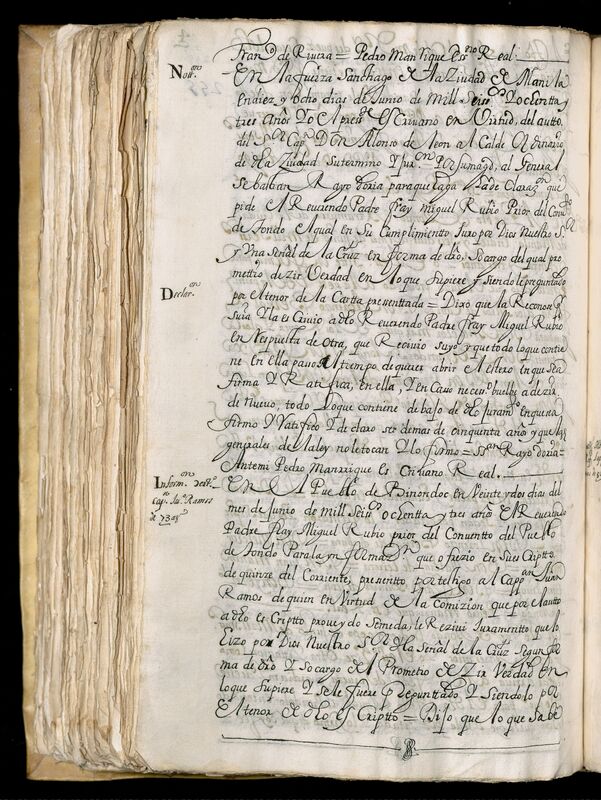 Fran.co de Rivera = Pedro Manrique Ess.no Real.
Nott.on
En la fuerza Sanctiago de la Ziudad de Manila
en diez y ocho dias de Junio de mill seis.os y ochentta y
tres años yo el pres.te escrivano en virtud, del autto
del S.or Cap.n Don Alonso de leon alCalde ordinario
de dha Ziudad su termino y Jur.on al General
Sebastian Rayo doria para que haga la de Claraz.on que
pide el Reverendo Padre fray miguel Rubio Prior del Conv.to
de tondo el qual en su Cumplimientto Juro por Dios Nuestro S.or
y Una señal de la Cruz en forma de dro, so cargo del qual pro
mettio dezir Verdad en lo que supiere y siendole preguntado
Declar.on
por el tenor de la Cartta presenttada = Dixo que la Reconoze
suia y la escrivio a dho Reverendo Padre fray Miguel Rubio
en Respuesta de otra, que Recivio suya y que todo lo que contie
ne en ella paso al tiempo de querer abrir el estero en que se a
firma y Ratifica, en ella, y en Caso neces.o buelbe a dezir
de nuevo, todo lo que contiene de bajo de dho Juram.to en que na
firmo y Ratifico y de claro ser de mas de cinquenta años y que las
generales de la ley no le tocan y lo firmo = Rayo doria =
Antemi Pedro Manrrique escrivano Real.
Inform.on
Cap.n Ju.o Ramos
de 73 a.s
En el Pueblo de Binondoc en Veinte y dos dias del
mes de Junio de mill Seis.os ochentta y tres años el Reverendo
Padre fray Miguel Rubio prior del Conventto del Pueblo
de tondo Para la ynformaz.on que ofrezio en su escriptto
de quinze del Corriente, presentto por testigo al Capp.an Juan
Ramos de quien en Virtud de la Comizion que por el autto
a dho escriptto proveydo se me da, le Rezivi Juramentto que lo
hizo por Dios Nuestro S.or y la señal de la Cruz segun for
ma de dro y so cargo de el Prometio dezir Verdad en
lo que supiere y se le fuere preguntado y siendolo por
el tenor de dho escriptto = Dijo que lo que sabe